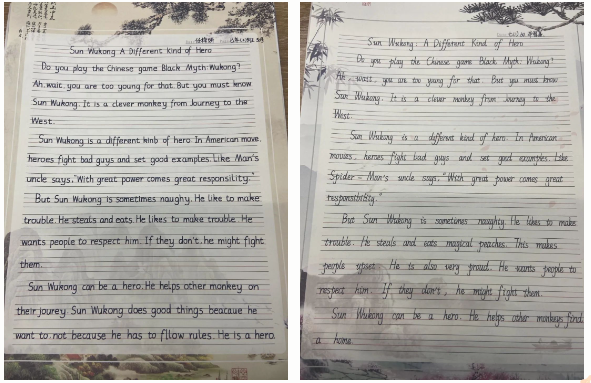 Sun Wukong A Different kind of Hero
Do you play the Chinese game Black Myth:Wukong?
Ah, wait, you are too young for that. But you must know
Sun Wukong. It is a clever monkey from Journey to the
West.
Sun Wukong is a different kinb of hero. In American move,
heroes fight bad guys and set good examples. Like Man's
uncle says, "With great power comes great responsility."
But Sun Wukong is sometimes naughy. He like to make
trouble. He steals and eats. He likes to make trouble. He
wants people to respect him. If they don't, he might fight
them.
Sun Wukong can be a hero. He helps other monkey on
their jourey. Sun Wukong does good things beacaue he
want to. not because he has to fllow rules. He is a hero.
Sun Wukong: A Different Kind of Hero
Do you play the Chinese game Black Myth: Wukong?
Ah, wait, you are too young for that. But you must know
Sun Wukong. It is a clever monkey from Journey to the
West.
Sun Wukong is a different kind of hero. In American
movies, heroes fight bad guys and set good examples. Like
Spider-Man's uncle says, "With great power comes great
responsibility."
But Sun Wukong is sometimes naughty. He likes to make
trouble. He steals and eats magical peaches. This makes
people upset. He is also very proud. He wants people to
respect him. If they don't, he might fight them.
Sun Wukong can be a hero. He helps other monkeys find
a home.